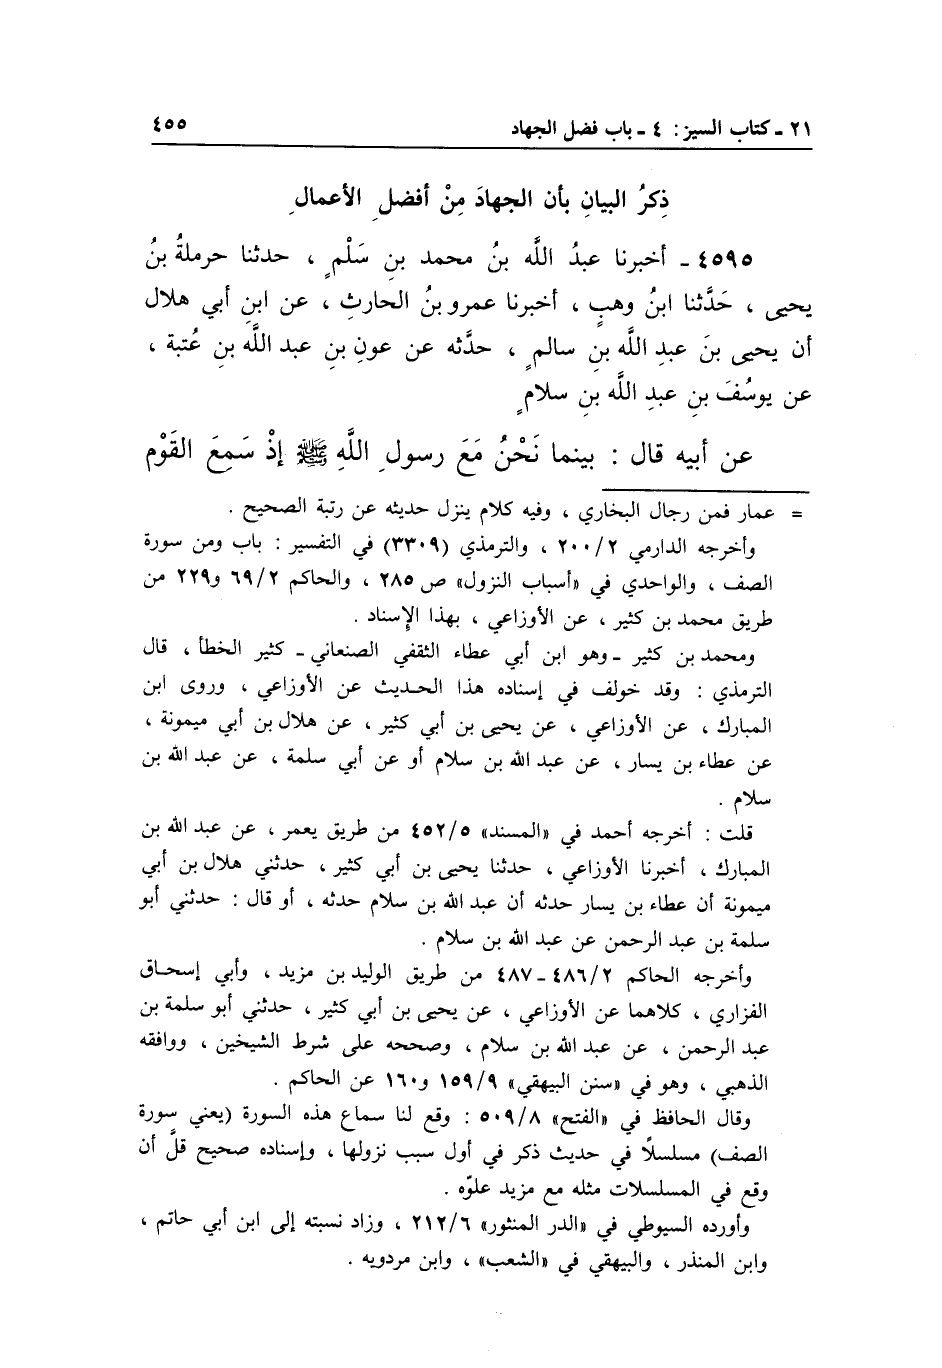 ٢١ ـ كتاب السير: ٤ ـ باب فضل الجهاد ٤٥٥
ذِكرُ البيانِ بأن الجهادَ مِنْ أفضلِ الأعمالِ
٤٥٩٥ ـ أخبرنا عبدُ اللَّه بنُ محمد بنِ سَلْمٍ ، حدثنا حرملةُ بنُ
يحيى ، حَدَّثنا ابنُ وهبٍ ، أخبرنا عمرو بنُ الحارثِ ، عن ابنِ أبي هلال
أن يحيى بنَ عبدِ اللَّه بنِ سالمٍ ، حدَّثه عن عونِ بنِ عبد اللَّه بنِ عُتبة ،
عن يوسُفَ بنِ عبدِ اللَّه بنِ سلامٍ
عن أبيه قال : بينما نَحْنُ مَعَ رسولِ اللَّهِ ﷺ إذْ سَمِعَ القَوْم
= عمار فمن رجال البخاري ، وفيه كلام ينزل حديثه عن رتبة الصحيح .
وأخرجه الدارمي ٢٠٠/٢ ، والترمذي (٣٣٠٩) في التفسير : باب ومن سورة
الصف ، والواحدي في «أسباب النزول» ص ٢٨٥ ، والحاكم ٦٩/٢ و٢٢٩ من
طريق محمد بن كثير ، عن الأوزاعي ، بهذا الإسناد .
ومحمد بن كثير ـ وهو ابن أبي عطاء الثقفي الصنعاني ـ كثير الخطأ ، قال
الترمذي : وقد خولف في إسناده هذا الحديث عن الأوزاعي ، وروى ابن
المبارك ، عن الأوزاعي ، عن يحيى بن أبي كثير ، عن هلال بن أبي ميمونة ،
عن عطاء بن يسار ، عن عبد الله بن سلام أو عن أبي سلمة ، عن عبد الله بن
سلام .
قلت : أخرجه أحمد في «المسند» ٤٥٢/٥ من طريق يعمر ، عن عبد الله بن
المبارك ، أخبرنا الأوزاعي ، حدثنا يحيى بن أبي كثير ، حدثني هلال بن أبي
ميمونة أن عطاء بن يسار حدثه أن عبد الله بن سلام حدثه ، أو قال : حدثني أبو
سلمة بن عبد الرحمن عن عبد الله بن سلام .
وأخرجه الحاكم ٤٨٦/٢ ـ ٤٨٧ من طريق الوليد بن مزيد ، وأبي إسحاق
الفزاري ، كلاهما عن الأوزاعي ، عن يحيى بن أبي كثير ، حدثني أبو سلمة بن
عبد الرحمن ، عن عبد الله بن سلام ، وصححه على شرط الشيخين ، ووافقه
الذهبي ، وهو في «سنن البيهقي» ١٥٩/٩ و١٦٠ عن الحاكم .
وقال الحافظ في «الفتح» ٥٠٩/٨ : وقع لنا سماع هذه السورة (يعني سورة
الصف) مسلسلًا في حديث ذكر في أول سبب نزولها ، وإسناده صحيح قلَّ أن
وقع في المسلسلات مثله مع مزيد علوّه .
وأورده السيوطي في «الدر المنثور» ٢١٢/٦ ، وزاد نسبته إلى ابن أبي حاتم ،
وابن المنذر ، والبيهقي في «الشعب» ، وابن مردويه .